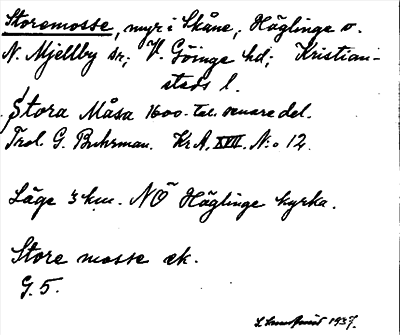 Storemosse, myr i Skåne, Häglinge o.
N. Mjellby sn; V. Göinge hd; Kristian-
stads l.
Stora Måsa 1600-tal. senare del.
Trol. G. Buhrman. Kr A. XVII. N:o 12.
Läge 3 km. NÖ Häglinge kyrka.
Store mosse ek.
G. 5.
1937.